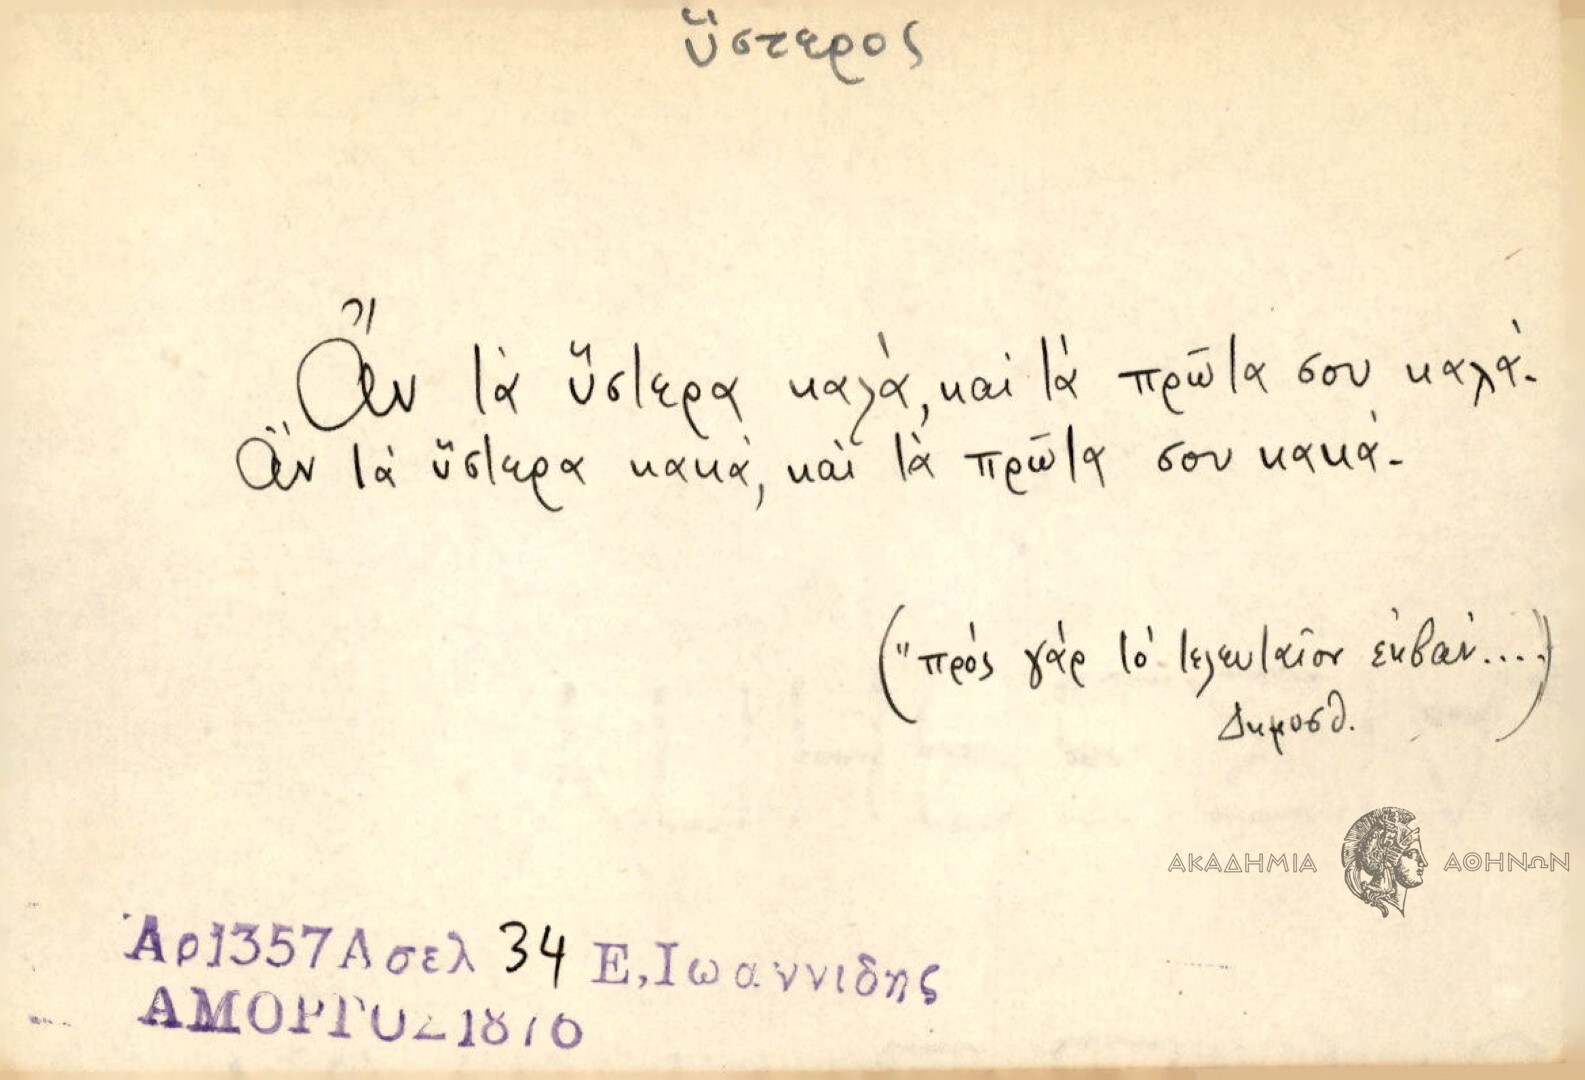 ὕστερος
Ἂν τὰ ὕστερα καλά, καὶ τὰ πρῶτα σου καλά.
Ἂν τὰ ὕστερα κακά, καὶ τὰ πρῶτα σου κακά.
("πρὸς γὰρ τὸ τελευταῖον ἐκβὰν....)
Δημοσθ.
ΑΚΑΔΗΜΙΑ ΑΘΗΝΩΝ
Αρ1357Α σελ 34 Ε.Ιωαννιδης
ΑΜΟΡΓΟΣ 1876